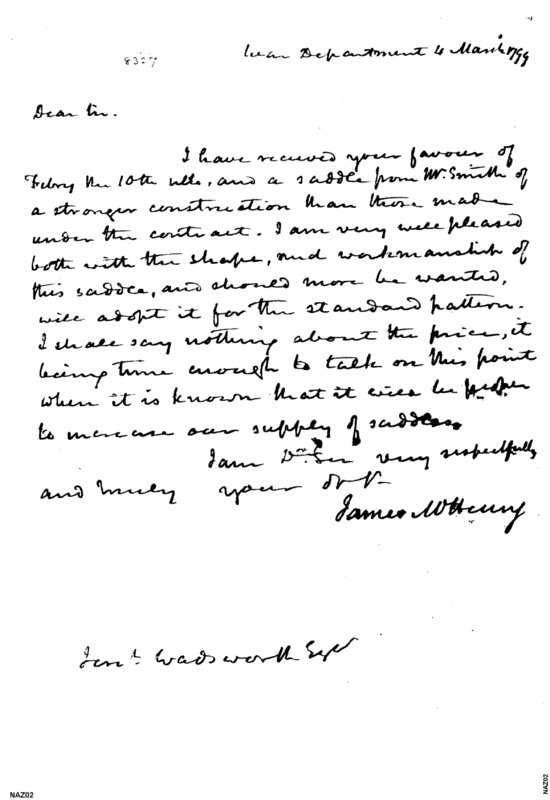 8327
War Department 4 March 1799
Dear Sir.
I have received your favour of
Febry the 10th ulto, and a saddle from Mr. Smith of
a stronger construction than those made
under the contract. I am very well pleased
both with the shape, and workmanship of
this saddle, and should more be wanted,
will adopt it for the standard pattern.
I shall say nothing about the price, it
being time enough to talk on this point
when it is known that it will be proper
to increase our supply of saddles.
I am Dr. Sir very respectfully
and truly your
James McHenry
Wadsworth Esqr
NAZ02
NAZ02